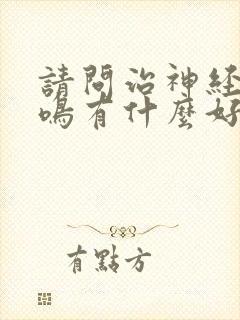 請問治神経
鳴有什麼好
有點方